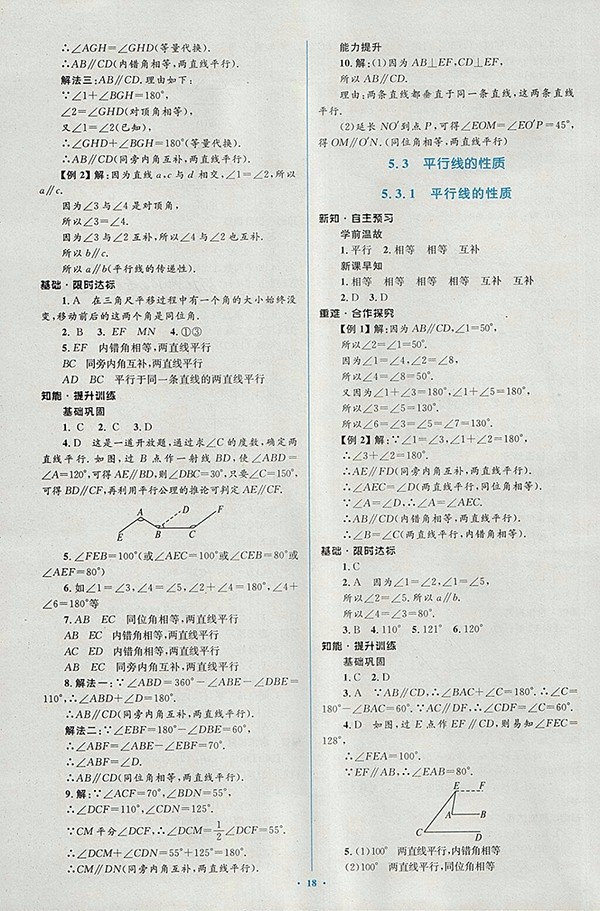 ∴∠AGH=∠GHD(等量代换).
∴AB∥CD(内错角相等,两直线平行).
解法三:AB∥CD.理由如下:
∵∠1+∠BGH=180°,
∠2=∠GHD(对顶角相等),
又∠1=∠2(已知),
∴∠GHD+∠BGH=180°(等量代换).
∴AB∥CD(同旁内角互补,两直线平行).
【例2】解:因为直线a,c与d相交,∠1=∠2,所以
a∥c.
因为∠3与∠4是对顶角,
所以∠3=∠4.
因为∠3与∠2互补,所以∠4与∠2也互补.
所以b∥c.
所以a∥b(平行线的传递性).
基础·限时达标
1.A 在三角尺平移过程中有一个角的大小始终没
变,移动前后的这两个角为同位角.
2.B 3.EF MN 4.①③
5.EF 内错角相等,两直线平行
BC 同旁内角互补,两直线平行
AD BC 平行于同一条直线的两直线平行
知能·提升训练
基础巩固
1.C 2.C 3.D
4.D 这是一道开放题,通过求∠C的度数,确定两
直线平行.如图,过B点作一射线BD,使∠ABD=
∠A=120°,可得AE∥BD,则∠DBC=30°,只要∠C=150°,
可得BD∥CF,再利用平行公理的推论可判定AE∥CF.
A D F
E B C
5.∠FEB=100°(或∠AEC=100°或∠CEB=80°或
∠AEF=80°)
6.如∠1=∠3,∠4=∠5,∠2+∠4=180°,∠4+
∠6=180°等
7.AB EC 同位角相等,两直线平行
AB EC 内错角相等,两直线平行
AC ED 内错角相等,两直线平行
AB EC 同旁内角互补,两直线平行
8.解法一:∵∠ABD=360°-∠ABE-∠DBE=
110°,∴∠ABD+∠D=180°.
∴AB∥CD(同旁内角互补,两直线平行).
解法二:∵∠EBF=180°-∠DBE=60°,
∴∠ABF=∠ABE-∠EBF=70°.
∴∠ABF=∠D.
∴AB∥CD(同位角相等,两直线平行).
9.解:∵∠ACF=70°,∠BDN=55°,
∴∠DCF=110°,∠CDN=125°.
∵CM平分∠DCF,∴∠DCM=1/2∠DCF=55°.
∴∠DCM+∠CDN=55°+125°=180°.
∴CM∥DN(同旁内角互补,两直线平行).
能力提升
10.解:(1)因为AB⊥EF,CD⊥EF,
所以AB∥CD.
理由:两条直线都垂直于同一条直线,这两条直线
平行.
(2)延长NO'到点P,可得∠EOM=∠EO'P=45°,
得OM∥O'N.(同位角相等,两直线平行)
5.3 平行线的性质
5.3.1 平行线的性质
新知·自主预习
学前温故
1.平行 2.相等 相等 互补
新课早知
1.相等 相等 相等 相等 互补 互补
2.D 3.D
重难·合作探究
【例1】解:因为AB∥CD,∠1=50°,
所以∠2=∠1=50°.
因为∠4=∠2,∠2=∠8,
所以∠4=∠8=50°.
又因为∠1+∠3=180°,∠1+∠5=180°,
所以∠3=∠5=130°.
所以∠6=∠3=∠5=∠7=130°.
【例2】解:∵∠1=∠3,∠1+∠2=180°,
∴∠3+∠2=180°.
∴AE∥FD(同旁内角互补,两直线平行).
∴∠AEC=∠D(两直线平行,同位角相等).
∵∠A=∠D,∴∠A=∠AEC.
∴AB∥CD(内错角相等,两直线平行).
∴∠B=∠C(两直线平行,内错角相等).
基础·限时达标
1.C
2.A 因为∠1=∠2,∠1=∠5,
所以∠2=∠5.所以a∥b.
所以∠3=∠4=80°.
3.B 4.110° 5.121° 6.120°
知能·提升训练
基础巩固
1.C 2.D
3.A ∵AB∥CD,∴∠BAC+∠C=180°.∴∠C=
180°-∠BAC=60°.∵AC∥DF,∴∠CDF=∠C=60°.
4.D 如图,过E点作EF∥CD,则易知∠FEC=
128°,
∴∠FEA=100°.
∵EF∥AB,∴∠EAB=80°.
E F
A B
C D
5.(1)100° 两直线平行,内错角相等
(2)100° 两直线平行,同位角相等
·18·